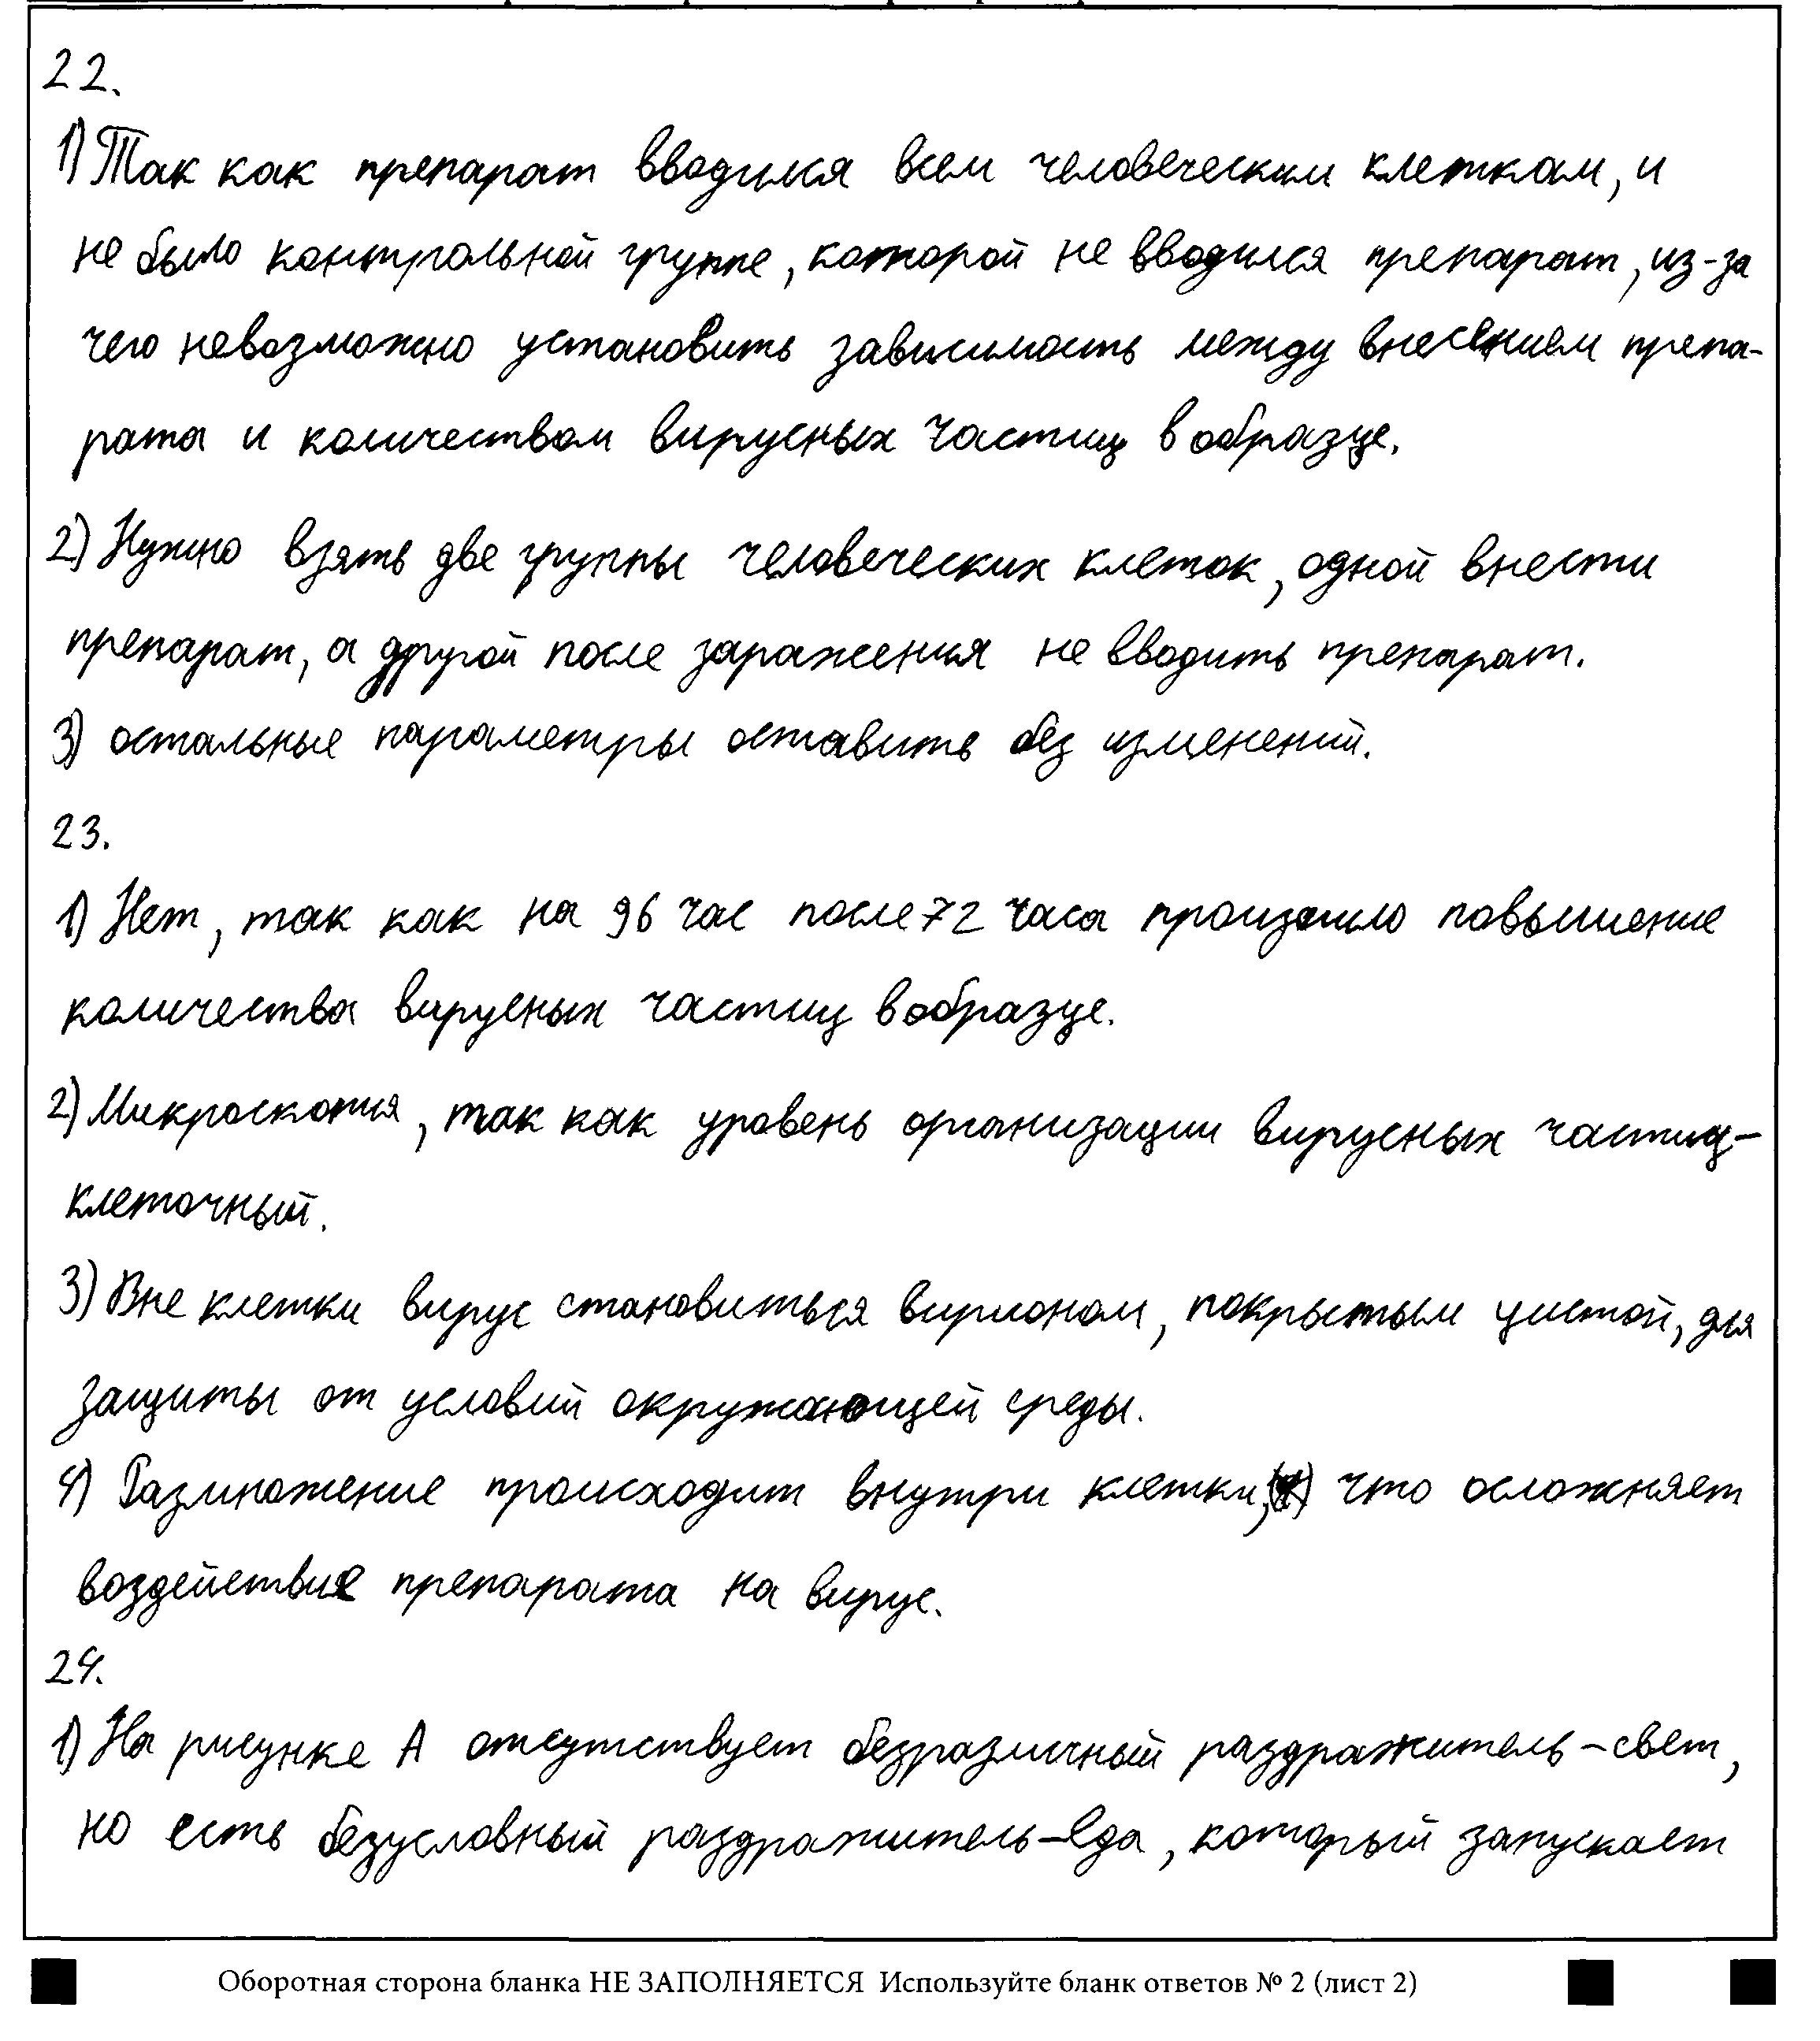 22.
1) Так как препарат вводился всем человеческим клеткам, и
не было контрольной группе, которой не вводился препарат, из-за
чего невозможно установить зависимость между внесением препа-
рата и количеством вирусных частиц в образце.
2) Нужно взять две группы человеческих клеток, одной внести
препарат, а другой после заражения не вводить препарат.
3) остальные параметры оставить без изменений.
23.
1) Нет, так как на 96 час после 72 часа произошло повышение
количества вирусных частиц в образце.
2) Микроскопия, так как уровень организации вирусных частиц -
клеточный.
3) Вне клетки вирус становиться вирионом, покрытым цистой, для
защиты от условий окружающей среды.
4) Размножение происходит внутри клетки, что осложняет
воздействие препарата на вирус.
24.
1) На рисунке А отсутствует безразличный раздражитель - свет,
но есть безусловный раздражитель - еда, который запускает
Оборотная сторона бланка НЕ ЗАПОЛНЯЕТСЯ Используйте бланк ответов № 2 (лист 2)